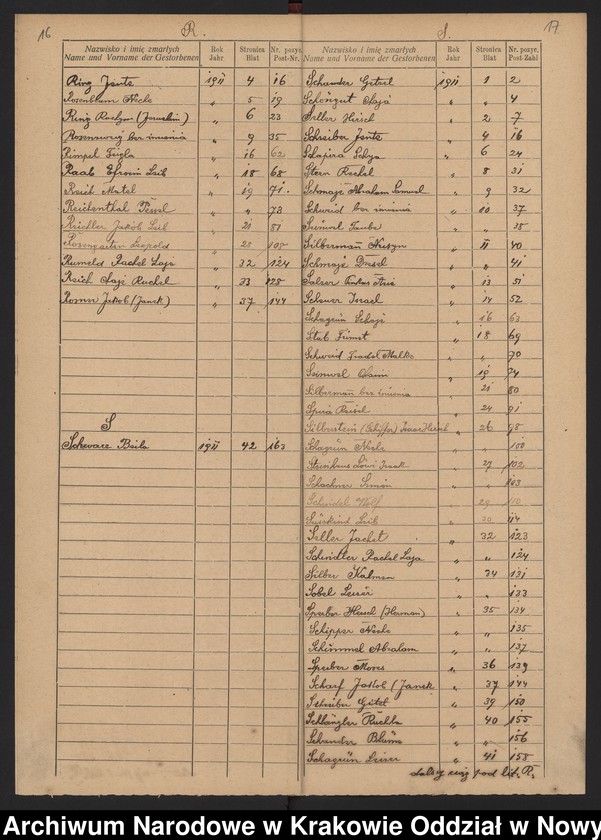 16
R.
Nazwisko i imię zmarłych Rok Stronica Nr. pozyc.
Name und Vorname der Gestorbenen Jahr Blat Post-Nr.
Ring Jente 1911 4 16
Rosenblum Neche „ 5 19
Ring Ruchem (Jerucheim) „ 6 23
Rosenzweig bez imienia „ 9 35
Rimpel Frigla „ 16 62
Raab Efroim Leib „ 18 68
Reich Matel „ 19 71
Reichenthal Pessel „ „ 73
Riechler Jakob Leib „ 21 81
Rosengarten Leopold „ 28 108
Rumeld Rachel Laja „ 32 124
Reich Chaje Ruchel „ 33 128
Rosner Jakob (Janek) „ 37 144
S
Schwarz Beila 1911 42 163
17
S.
Nazwisko i imię zmarłych Rok Stronica Nr. pozyc.
Name und Vorname der Gestorbenen Jahr Blat Post-Zahl
Schander Gitzel 1911 1 2
Schöngut Chaja „ „ 4
Seller Hirsch „ 2 7
Schreiber Jente „ 4 16
Schapira Scheja „ 6 24
Stern Rachel „ 8 31
Schmaje Abraham Samuel „ 9 32
Schmid bez imienia „ 10 37
Samuel Taube „ „ 38
Silberman „ 11 40
Schmaje Dresel „ „ 41
Salzer „ 13 51
Scheuer Israel „ 14 52
Schagrin Scheje „ 16 63
Stub Frimet „ 18 69
Schmid Frachel Malke „ 70
Seimwel „ 19 74
Silberman bez imienia „ 21 80
Spira Reisel „ 24 91
Silberstein (Schiffer) Isaac Hersch „ 26 98
Schagrün Neche „ „ 100
Steinhaus Löwi Izaak 27 102
Schachner Simon „ „ 103
Schnidel Wolf „ 29 110
Süsskind Leib „ 30 114
Seller Jachet „ 32 123
Schindler Rachel Laja „ „ 124
Silber Kalmen „ 34 131
Sobel Leiser „ „ 133
Sperber Hersch (Herman) „ 35 134
Schipper Neche „ „ 135
Schimmel Abraham „ „ 137
Sperber Moses „ 36 139
Scharf Jakob (Janek „ 37 144
Schreiber Gitel „ 39 150
Schlänzler Ruchla „ 40 155
Schander Blüme „ „ 156
Schagrün Leiser „ 41 158
dalszy ciąg pod lit. R.
Archiwum Narodowe w Krakowie Oddział w Nowy